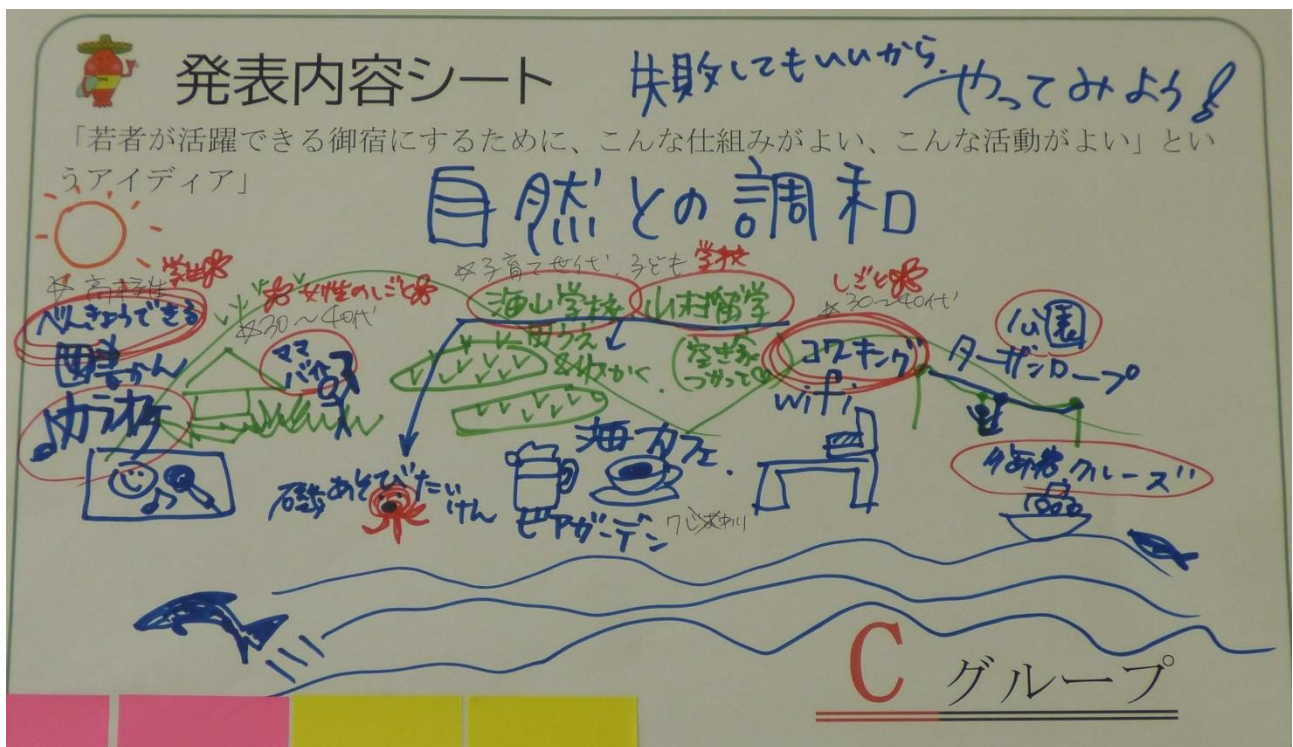 発表内容シート
失敗してもいいから
やってみよう!
「若者が活躍できる御宿にするために、こんな仕組みがよい、こんな活動がよい」とい
うアイディア」
自然との調和
※高校生 学生
べんきょうできる
図書かん
カラオケ
女性のしごと
※30〜40代
ママ
バイト
※子育て世代、子ども 学校
海山学校
山村留学
田うえ
(空き家
つかって)
しごと
※30〜40代
コワーキング
wifi
公園
ターザンロープ
磯あそびたいけん
海カフェ
ビアガーデン
クルーズ
C グループ